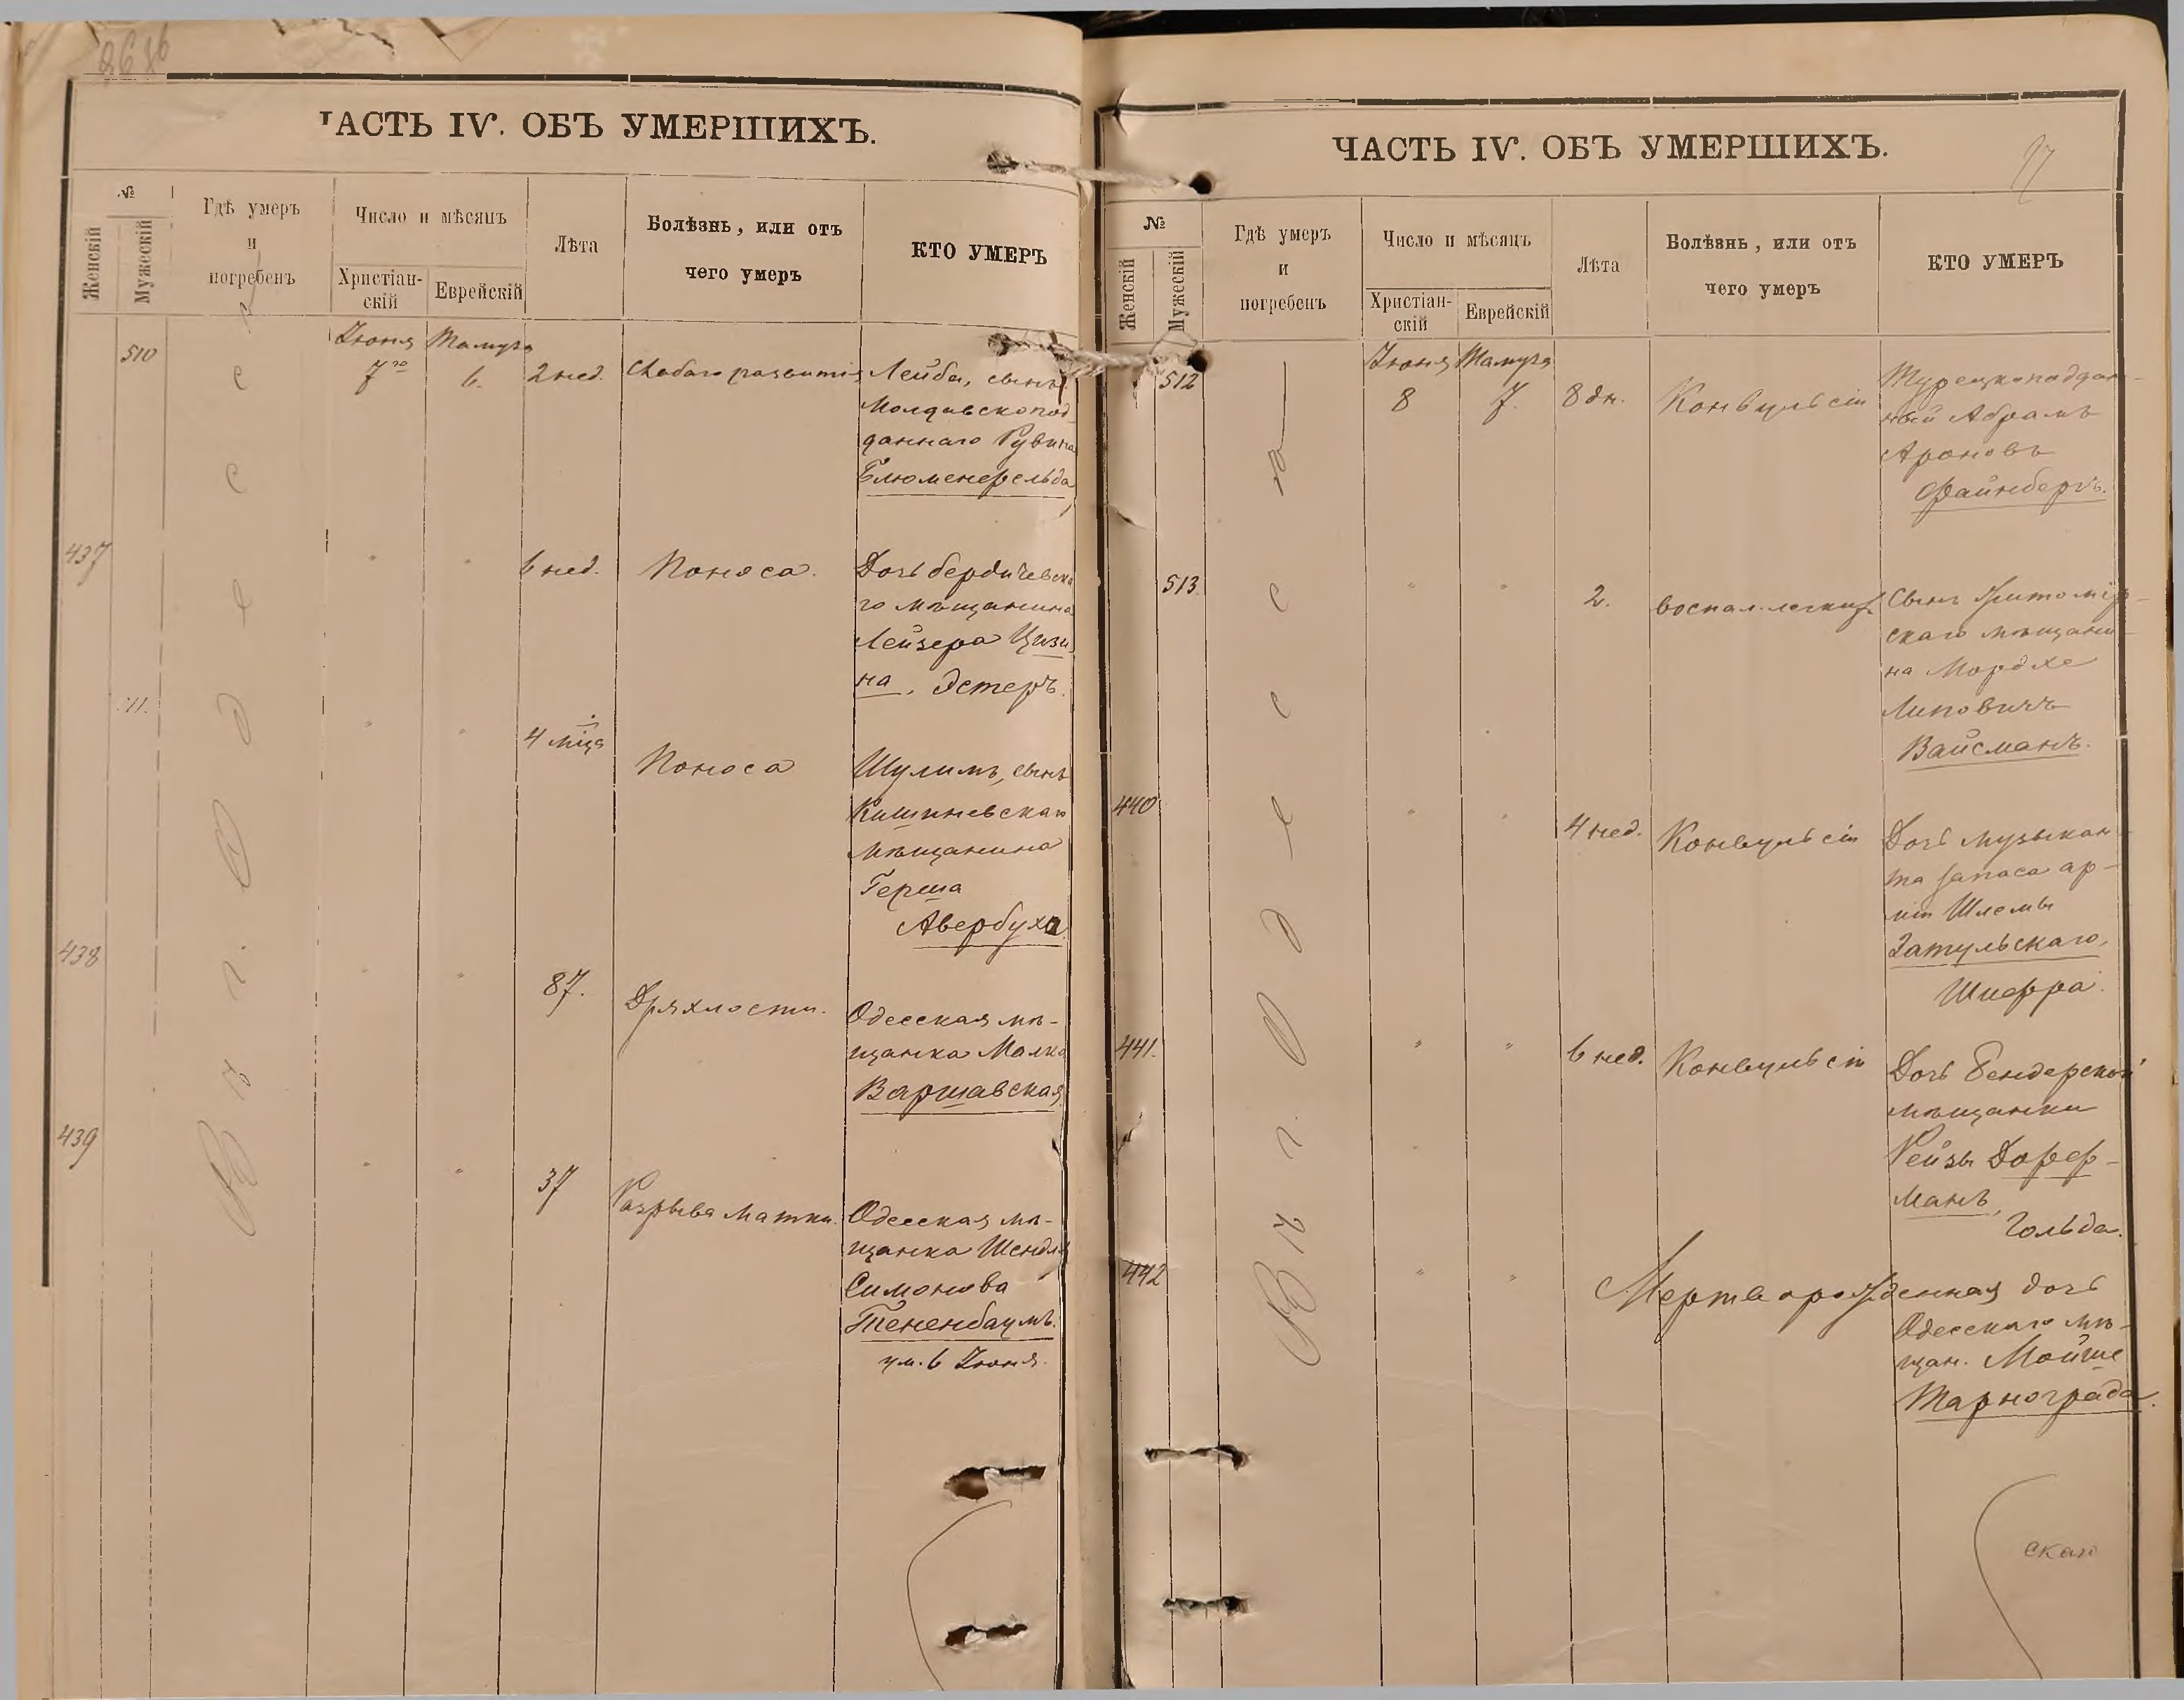 ЧАСТЬ IV. ОБЪ УМЕРШИХЪ.
№
Женскій
Мужескій
Гдѣ умеръ
и
погребенъ
Число и мѣсяцъ
Христіан-
скій
Еврейскій
Лѣта
Болѣзнь, или отъ
чего умеръ
КТО УМЕРЪ
Въ г. Одессѣ
Іюня Тамуза
510 7го 6. 2 нед. Слабаго развитія Лейба, сынъ
Молдавскопод-
даннаго Рувина
Блюменфельда
437 " " 6 нед. Поноса. Дочь бердичевска
го мѣщанина
Лейзера Цизи
на, Эстеръ.
511. " " 4 мца Поноса Шулимъ, сынъ
Кишиневскаго
мѣщанина
Герша
Авербуха
438 " " 87. Дряхлости. Одесская мѣ-
щанка Малка
Варшавская
439 " " 37 Разрыва матки. Одесская мѣ-
щанка Шендля
Симонова
Тененбаумъ.
ум. 6 Іюня.
ЧАСТЬ IV. ОБЪ УМЕРШИХЪ.
№
Женскій
Мужескій
Гдѣ умеръ
и
погребенъ
Число и мѣсяцъ
Христіан-
скій
Еврейскій
Лѣта
Болѣзнь, или отъ
чего умеръ
КТО УМЕРЪ
Въ г. Одессѣ
Іюня Тамуза
512 8 7. 8 дн. Конвульсіи Турецкоподдан-
ный Абрамъ
Ароновъ
Файнбергъ.
513. " " 2. воспал. легкихъ Сынъ Житомір-
скаго мѣщани-
на Мордхе
Липовичъ
Вайсманъ.
440 " " 4 нед. Конвульсіи Дочь музыкан-
та запаса ар-
міи Шлемы
Затульскаго,
Шифра.
441. " " 6 нед. Конвульсіи Дочь Бендерской
мѣщанки
Рейзы Дорф-
манъ,
Гольда.
442 " " Мертворожденная дочь
Одесскаго мѣ-
щан. Мойше
Тарнограда.
скаго